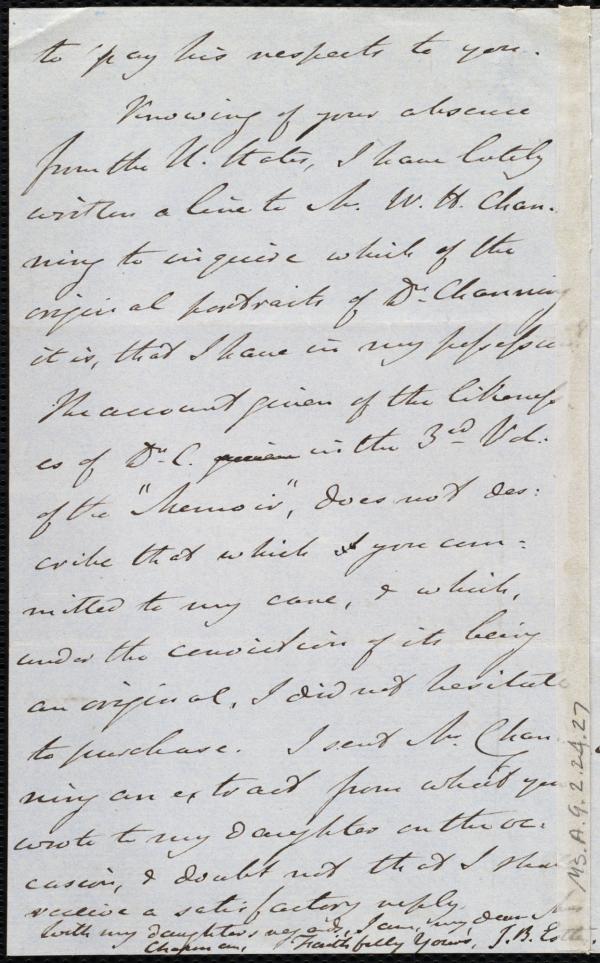 to pay his respects to you.
Knowing of your absence
from the U. States, I have lately
written a line to Mr. W. H. Chan-
ning to inquire which of the
original portraits of Dr. Channing
it is, that I have in my possession
The account given of the likeness-
es of Dr. C. given in the 3rd Vol:
of the "Memoir", does not des:
cribe that which you com:
mitted to my care, & which,
under the conviction of its being
an original, I did not hesitate
to purchase. I sent Mr. Chan-
ning an extract from what you
wrote to my daughter on the oc:
casion, & doubt not that I shall
receive a satisfactory reply.
With my daughter's regards, I am, my dear Mrs
Chapman, Faithfully Yours, J. B. Estlin.
Ms. A. 9. 2. 24. 27